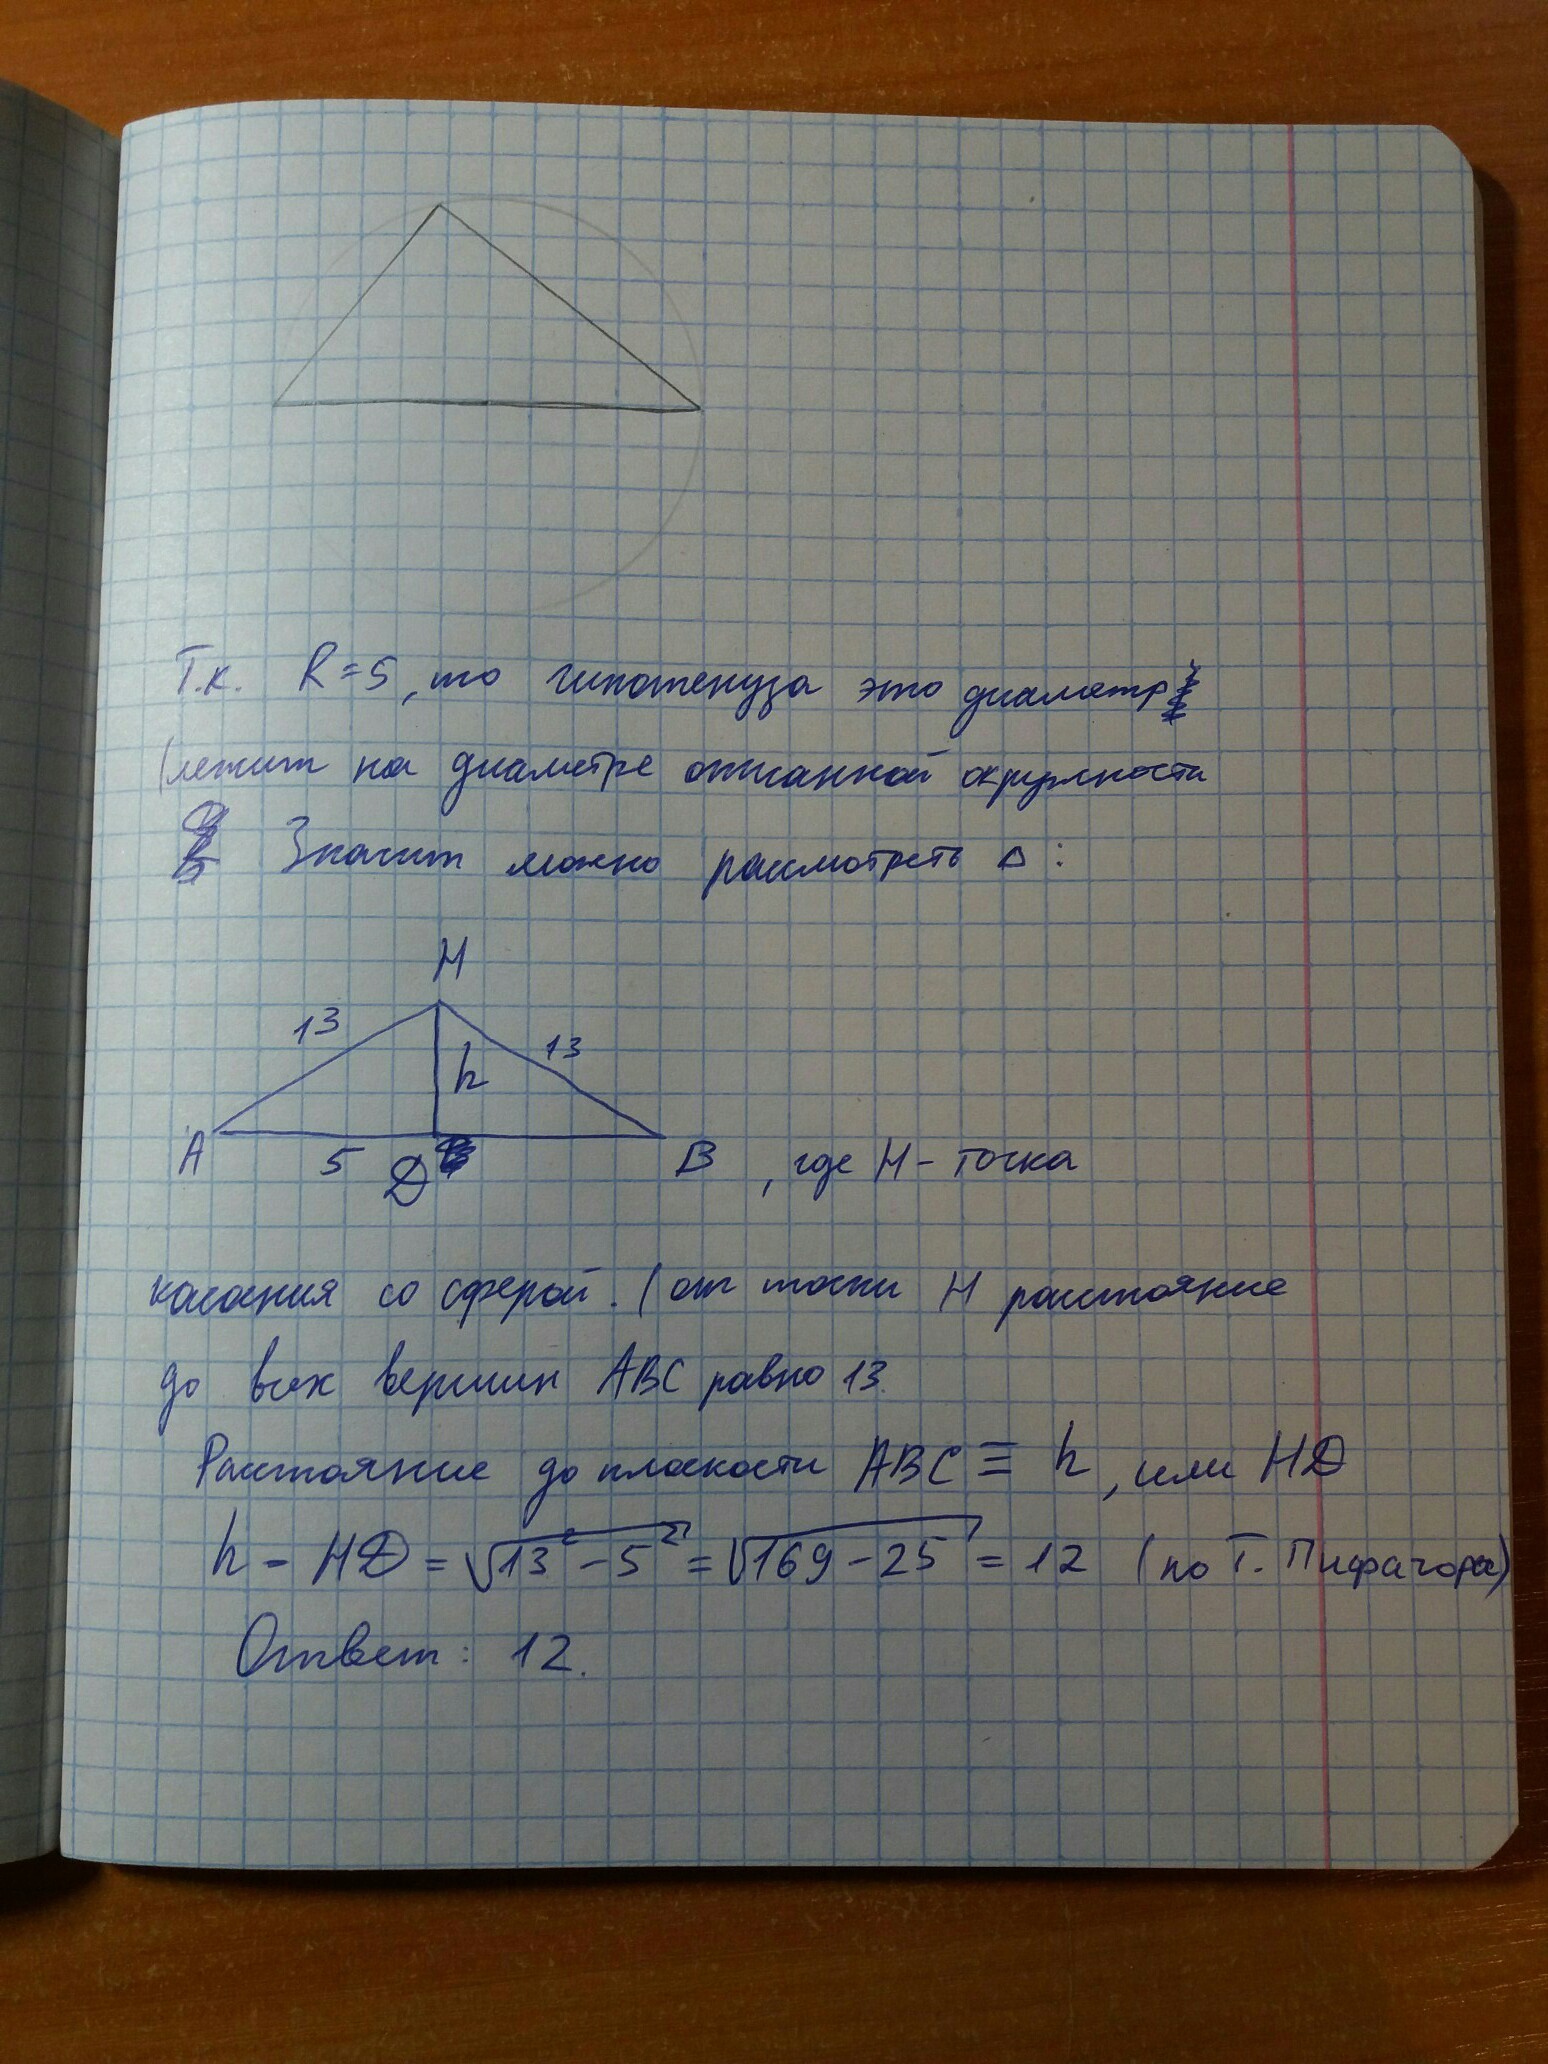 Т.к. R=5, то гипотенуза это диаметр
(лежит на диаметре описанной окружности
Значит можно рассмотреть Δ:
H
13
13
h
A
5
D
B
, где H - точка
касания со сферой. (от точки H расстояние
до всех вершин ABC равно 13.
Расстояние до плоскости ABC ≡ h, или HD
h - HD = √13² - 5² = √169 - 25 = 12 (по Т. Пифагора)
Ответ: 12.